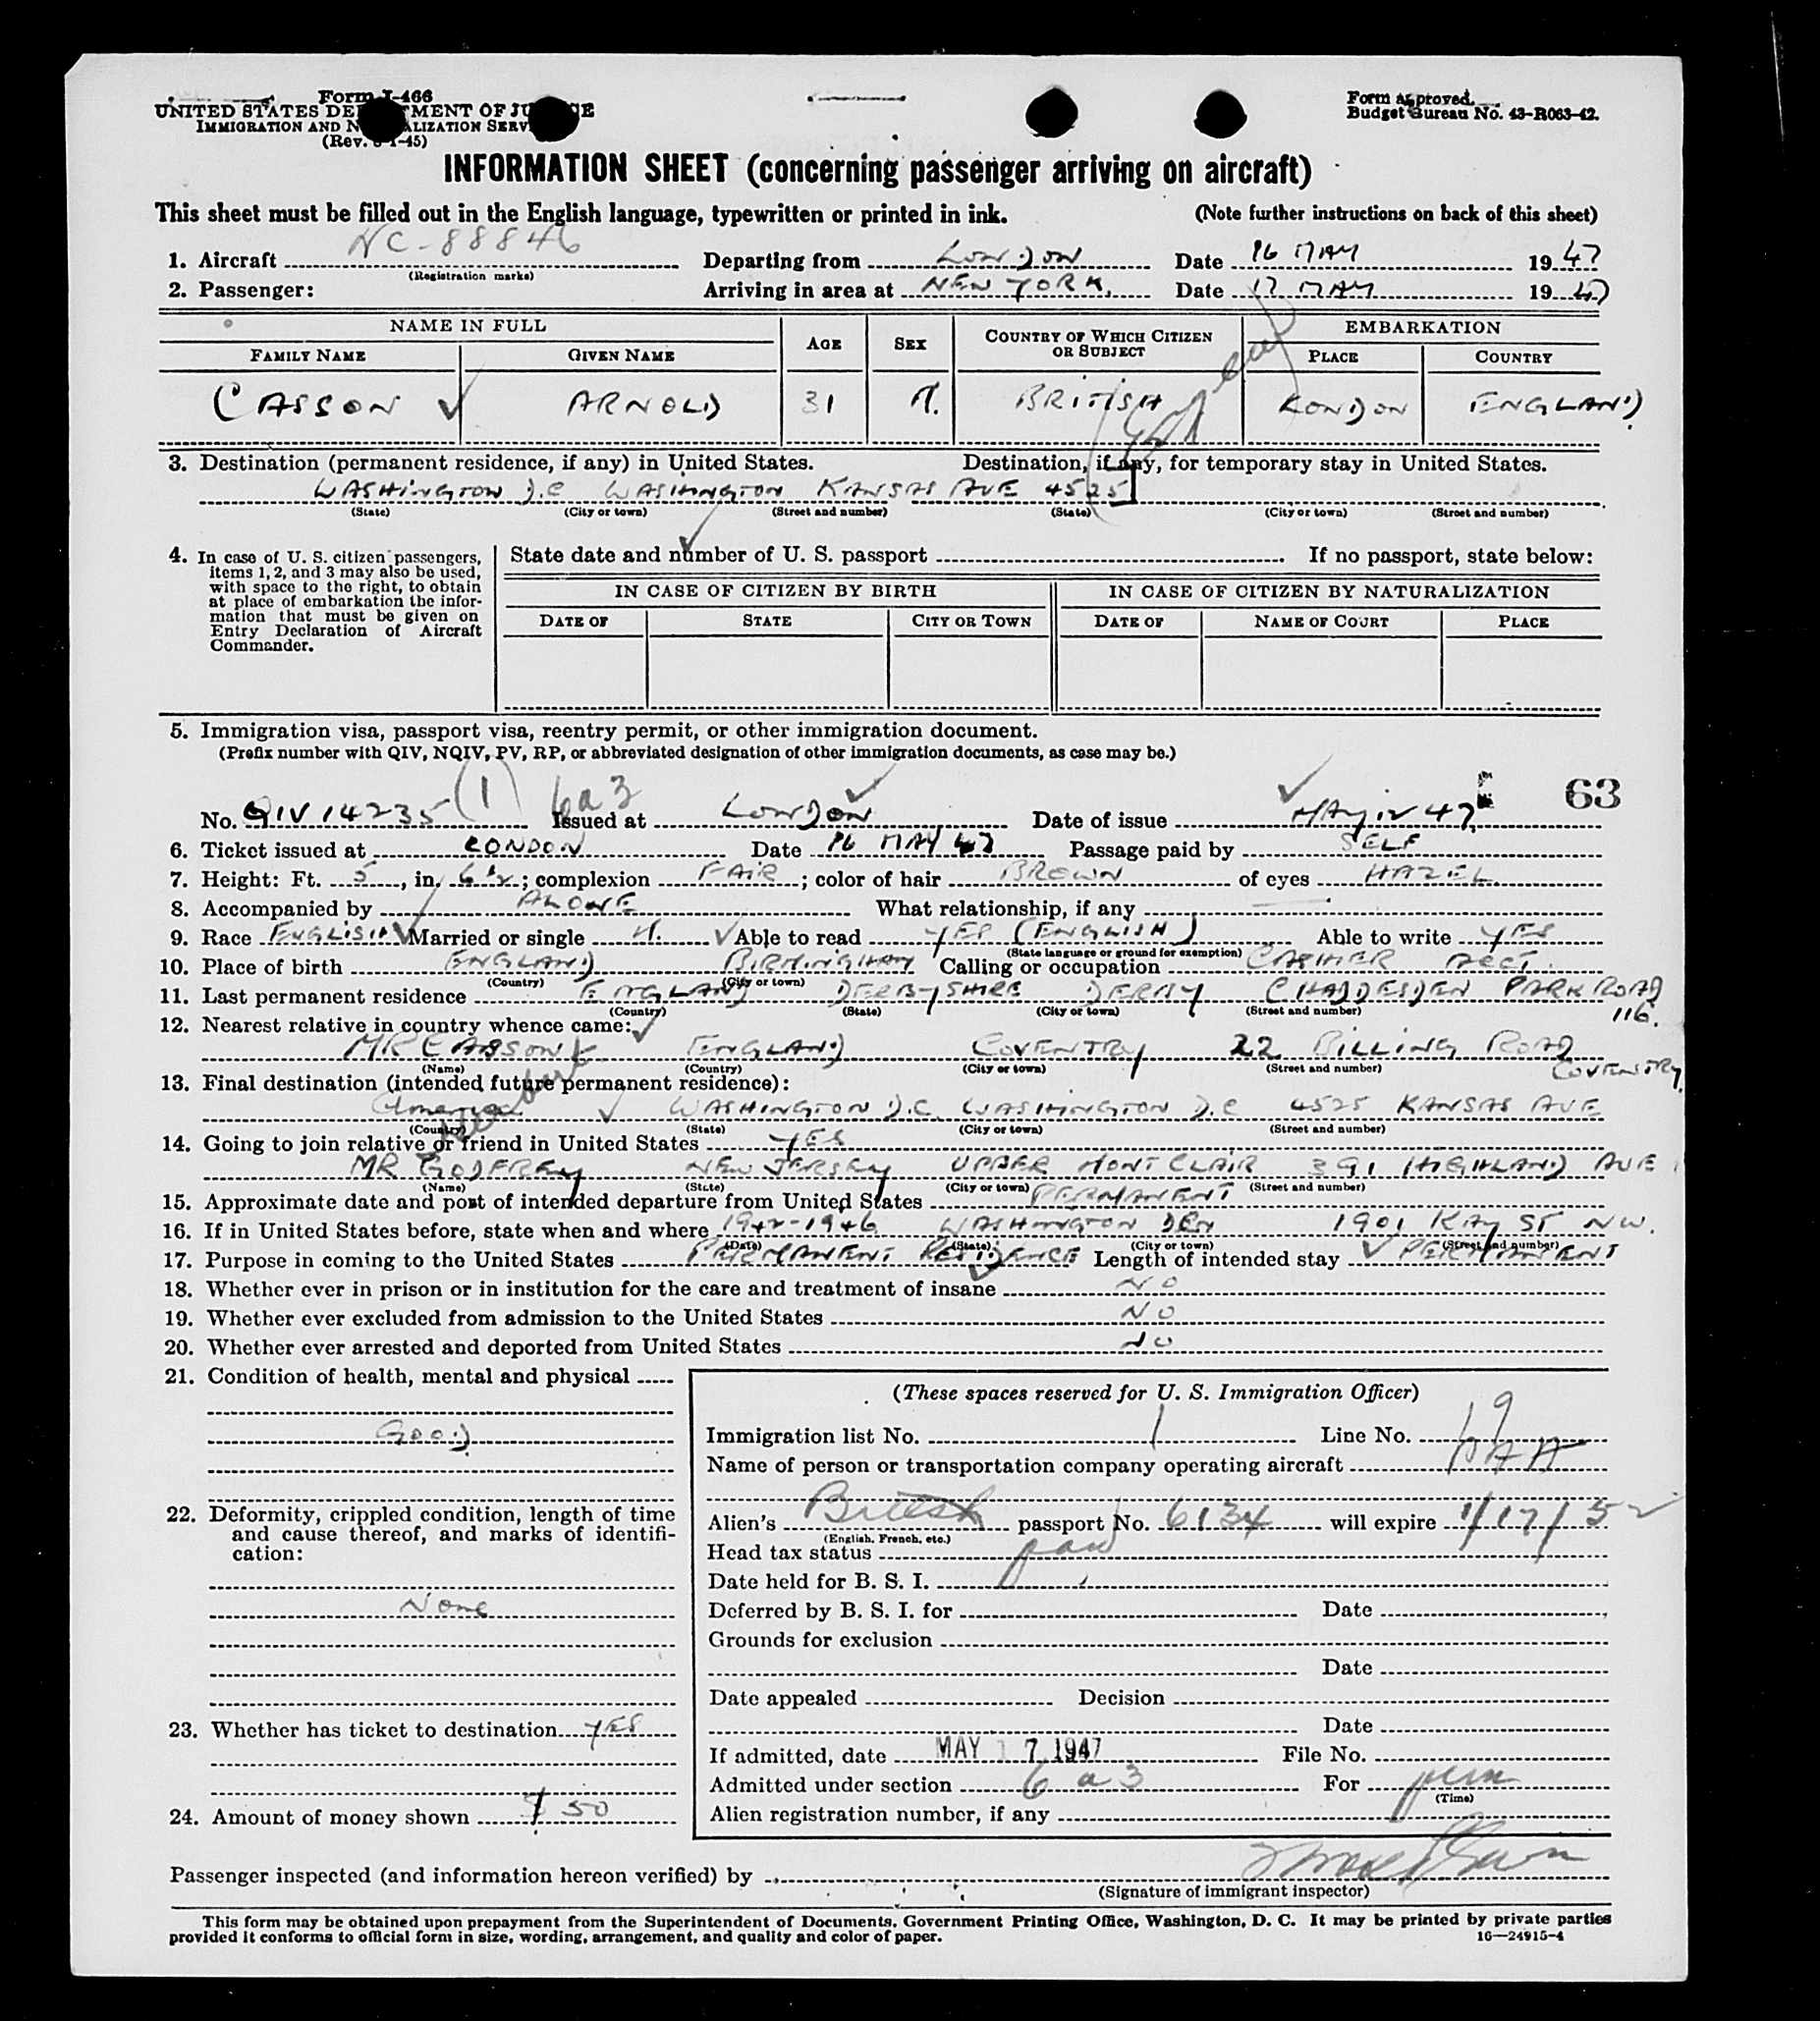 Form I-466
UNITED STATES DEPARTMENT OF JUSTICE
IMMIGRATION AND NATURALIZATION SERVICE
(Rev. 8-1-45)
Form approved.
Budget Bureau No. 43-R063-42.
INFORMATION SHEET (concerning passenger arriving on aircraft)
This sheet must be filled out in the English language, typewritten or printed in ink. (Note further instructions on back of this sheet)
1. Aircraft NC-88846 Departing from LONDON Date 16 MAY 1947
(Registration marks)
2. Passenger: Arriving in area at NEW YORK. Date 17 MAY 1947
NAME IN FULL AGE SEX COUNTRY OF WHICH CITIZEN OR SUBJECT EMBARKATION
FAMILY NAME GIVEN NAME PLACE COUNTRY
CASSON ARNOLD 31 M. BRITISH LONDON ENGLAND.
3. Destination (permanent residence, if any) in United States. Destination, if any, for temporary stay in United States.
WASHINGTON D.C WASHINGTON KANSAS AVE 4525
(State) (City or town) (Street and number) (State) (City or town) (Street and number)
4. In case of U. S. citizen passengers, items 1, 2, and 3 may also be used, with space to the right, to obtain at place of embarkation the information that must be given on Entry Declaration of Aircraft Commander.
State date and number of U. S. passport . If no passport, state below:
IN CASE OF CITIZEN BY BIRTH IN CASE OF CITIZEN BY NATURALIZATION
DATE OF STATE CITY OR TOWN DATE OF NAME OF COURT PLACE
5. Immigration visa, passport visa, reentry permit, or other immigration document.
(Prefix number with QIV, NQIV, PV, RP, or abbreviated designation of other immigration documents, as case may be.)
63
No. QIV 14235 (1) 6a3 Issued at LONDON Date of issue MAY 12 47
6. Ticket issued at LONDON Date 16 MAY 47 Passage paid by SELF
7. Height: Ft. 5, in. 6 1/2; complexion FAIR; color of hair BROWN of eyes HAZEL
8. Accompanied by ALONE What relationship, if any —
9. Race ENGLISH Married or single M. Able to read YES (ENGLISH) Able to write YES
(State language or ground for exemption)
10. Place of birth ENGLAND BIRMINGHAM Calling or occupation CASHIER ACCT.
(Country) (City or town)
11. Last permanent residence ENGLAND DERBYSHIRE DERBY CHADDESDEN PARK ROAD
116.
(Country) (State) (City or town) (Street and number)
12. Nearest relative in country whence came:
MR CASSON ENGLAND COVENTRY 22 BILLING ROAD
COVENTRY.
(Name) (Country) (City or town) (Street and number)
13. Final destination (intended future permanent residence):
America WASHINGTON D.C. WASHINGTON D.C 4525 KANSAS AVE
(Country) (State) (City or town) (Street and number)
14. Going to join relative or friend in United States YES
MR GODFREY NEW JERSEY UPPER MONTCLAIR 391 HIGHLAND AVE
(Name) (State) (City or town) (Street and number)
15. Approximate date and port of intended departure from United States PERMANENT
16. If in United States before, state when and where 1942-1946 WASHINGTON 1901 KAY ST NW.
(Date) (State) (City or town) (Street and number)
17. Purpose in coming to the United States PERMANENT RESIDENCE Length of intended stay PERMANENT
18. Whether ever in prison or in institution for the care and treatment of insane NO
19. Whether ever excluded from admission to the United States NO
20. Whether ever arrested and deported from United States NO
21. Condition of health, mental and physical
GOOD
22. Deformity, crippled condition, length of time and cause thereof, and marks of identification:
None
23. Whether has ticket to destination YES
24. Amount of money shown $ 50
(These spaces reserved for U. S. Immigration Officer)
Immigration list No. 1 Line No. 19
Name of person or transportation company operating aircraft PAA
Alien's British passport No. 6134 will expire 1/17/52
(English, French, etc.)
Head tax status paid
Date held for B. S. I.
Deferred by B. S. I. for Date
Grounds for exclusion
Date
Date appealed Decision
Date
If admitted, date MAY 17 1947 File No.
Admitted under section 6 a 3 For perm
(Time)
Alien registration number, if any
Passenger inspected (and information hereon verified) by
(Signature of immigrant inspector)
This form may be obtained upon prepayment from the Superintendent of Documents, Government Printing Office, Washington, D. C. It may be printed by private parties
provided it conforms to official form in size, wording, arrangement, and quality and color of paper. 16—24915-4